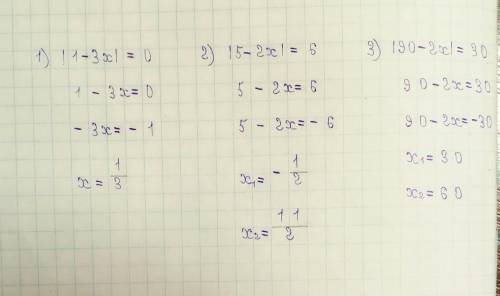 1) |1-3x| = 0
1 - 3x = 0
- 3x = - 1
x = 1/3
2) |5-2x| = 6
5 - 2x = 6
5 - 2x = - 6
x₁ = - 1/2
x₂ = 11/2
3) |90-2x| = 30
90-2x=30
90-2x=-30
x₁ = 30
x₂ = 60